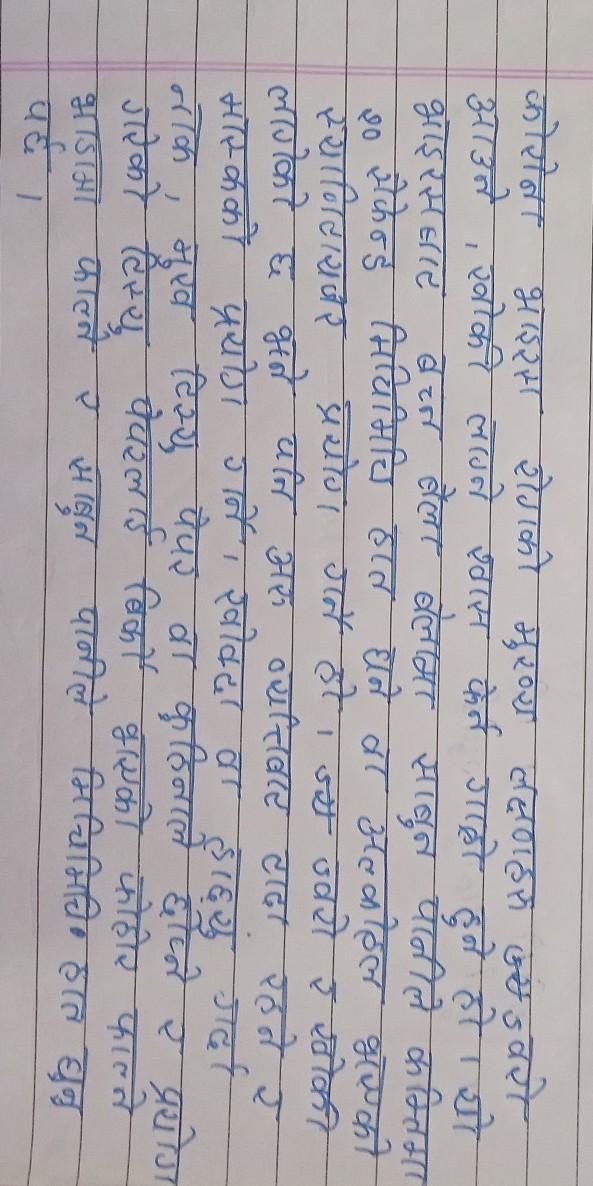 कोरोना भाइरस रोगको मुख्य लक्षणहरू ज्वरो
आउने, खोकी लाग्ने स्वास फेर्न गाह्रो हुने हो। यो
भाइरसबाट बच्न बेला बेलामा साबुन पानीले कम्तिमा
२० सेकेन्ड मिचिमिचि हात धुने वा अल्कोहल भएको
स्यानिटायजर प्रयोग गर्ने हो। ज्वरो र खोकी
लागेको छ भने पनि अरु व्यक्तिबाट टाढा रहने र
मास्कको प्रयोग गर्ने, खोक्दा वा हाछ्यु गर्दा
नाक, मुख टिस्यु पेपर वा कुहिनाले छोप्ने र प्रयोग
गरेको टिस्यु पेपरलाई बिर्को भएको फोहोर फाल्ने
भाडामा फाल्ने र साबुन पानीले मिचिमिचि हात धुनु
पर्छ।